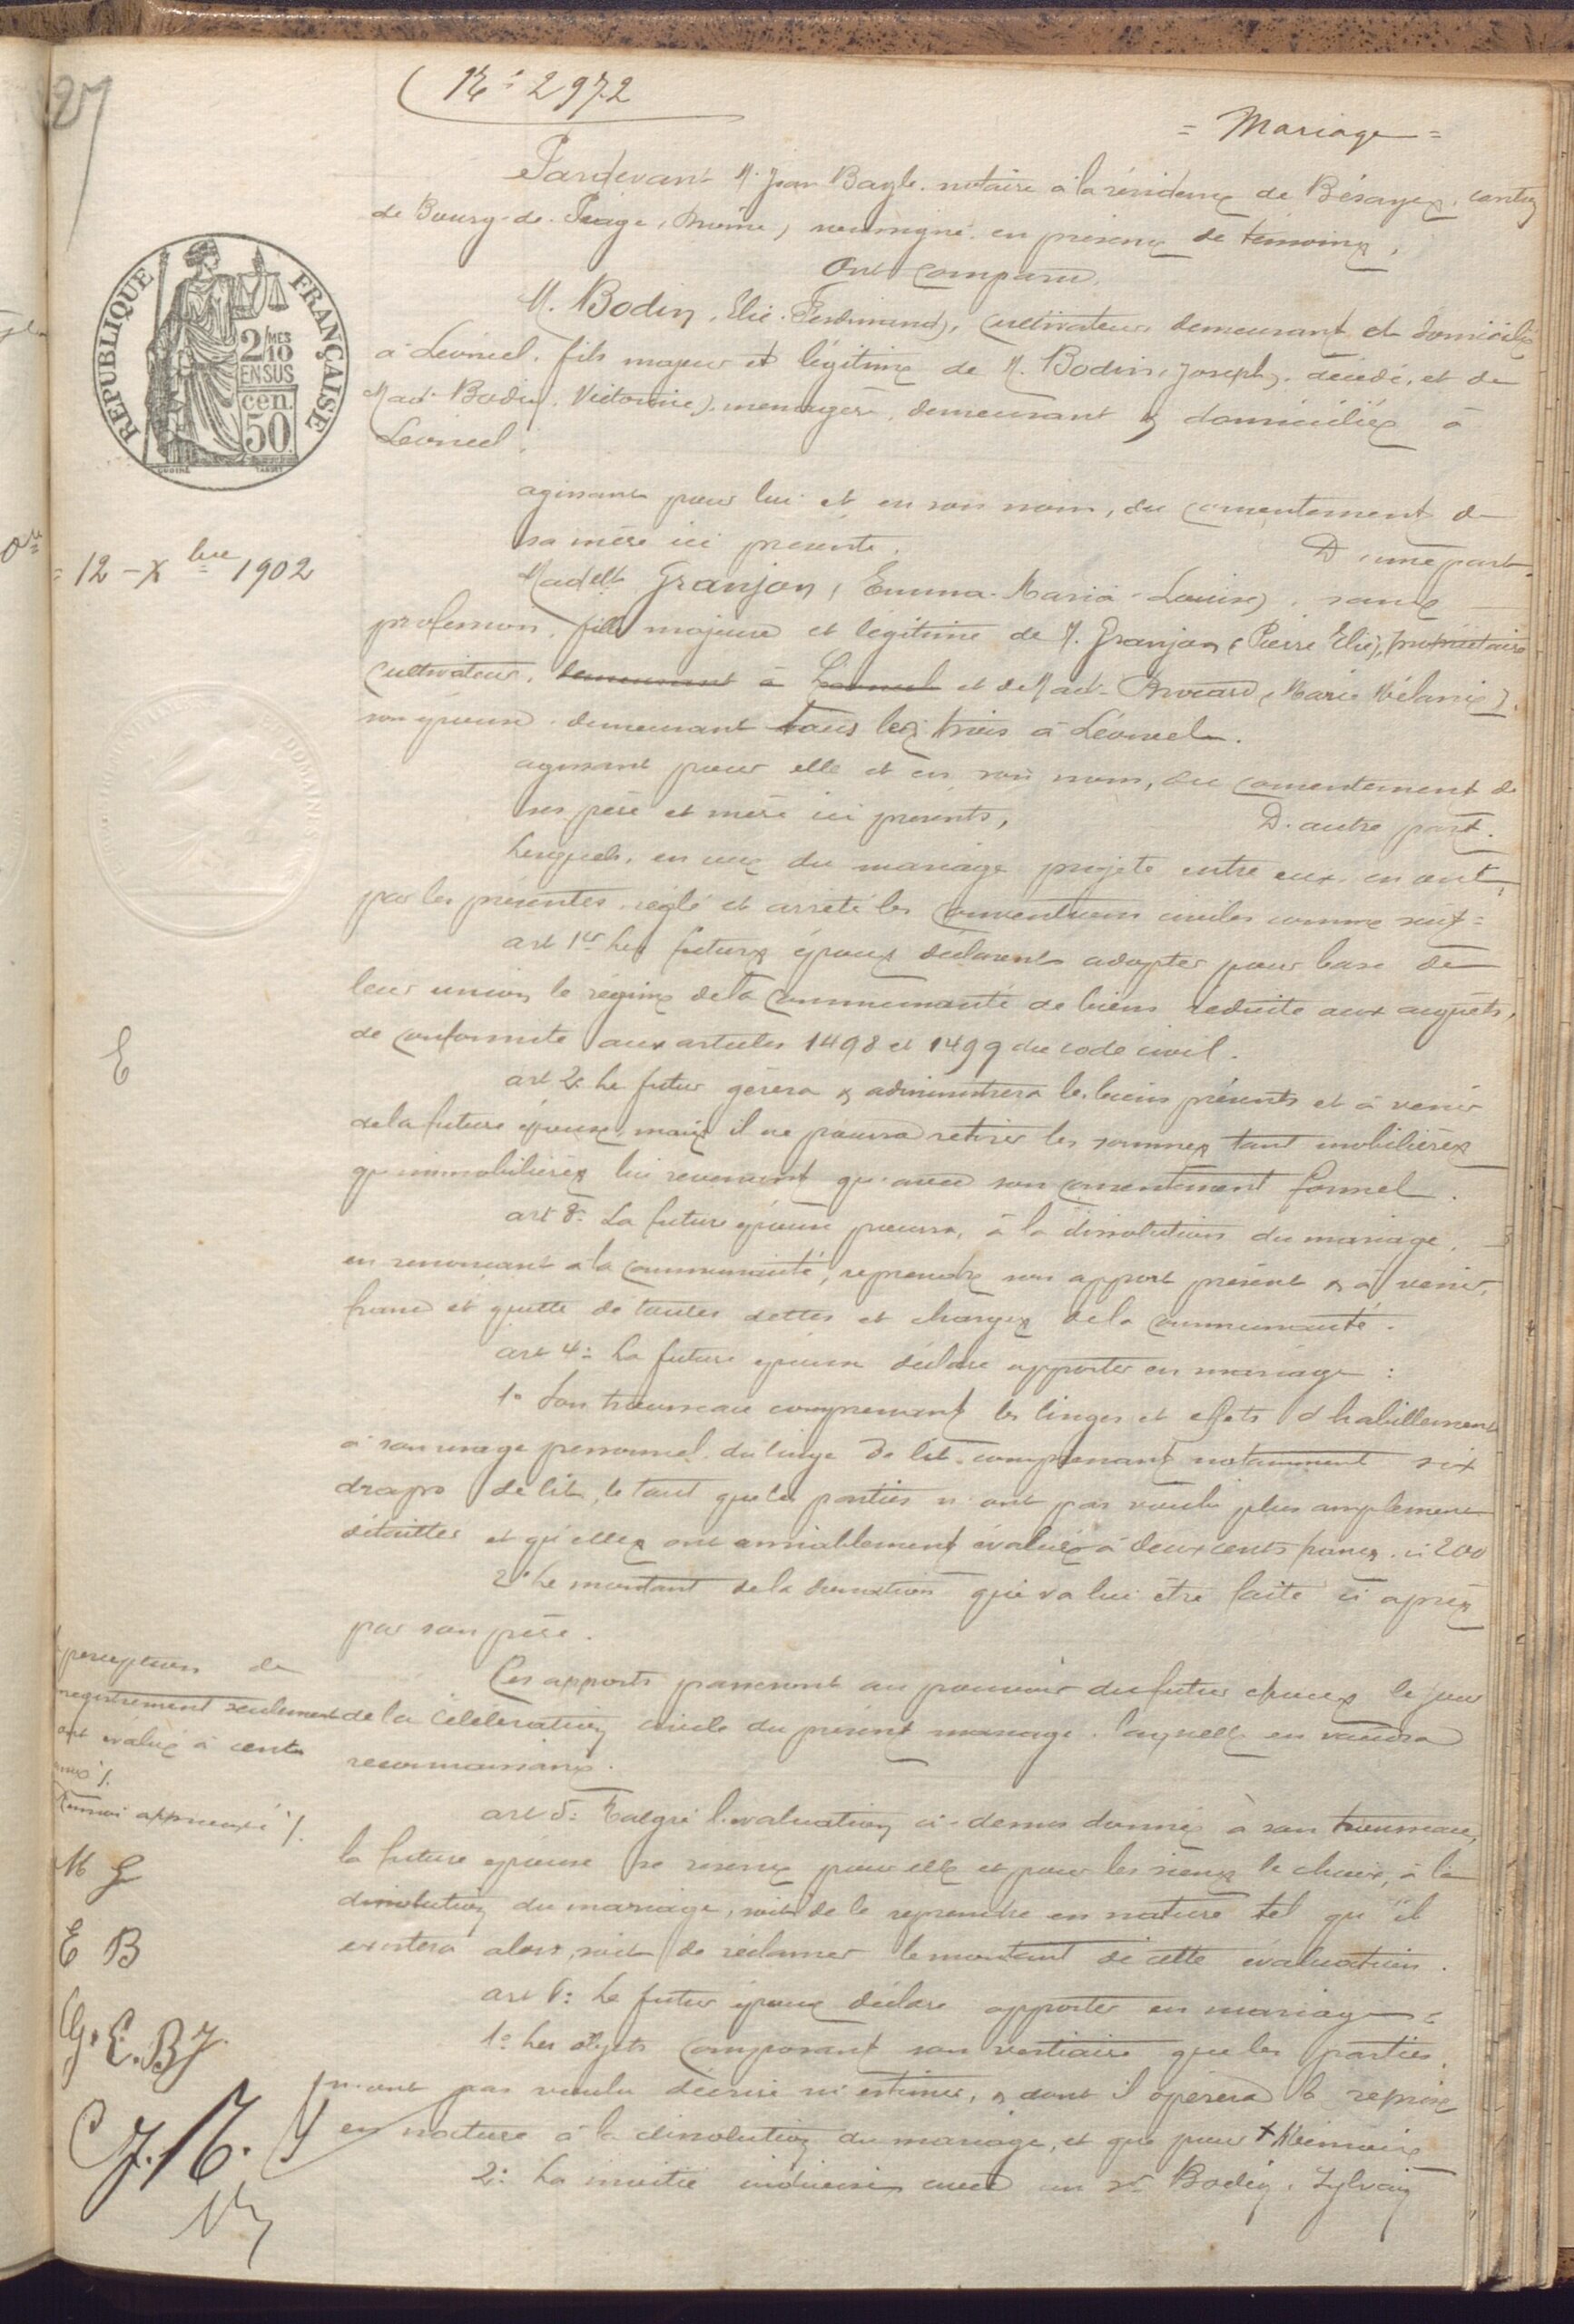 27
N° 2972
= Mariage =
Pardevant M. Jean Bayle, notaire à la résidence de Bésayes, canton
de Bourg-de-Péage, (Drôme) soussigné en présence de témoins,
Ont comparu,
M. Bodin, (Elie-Ferdinand), cultivateur demeurant et domicilié
à Léoncel, fils majeur et légitime de M. Bodin, (Joseph), décédé, et de
Mad. Bodin, (Victorine), ménagère, demeurant & domiciliée à
Léoncel.
REPUBLIQUE FRANÇAISE
2/10 MES
EN SUS
cen.
50
agissant pour lui et en son nom, du consentement de
sa mère ici présente.
D'une part.
= 12 - Xbre 1902
Madelle Granjon, (Emma-Maria-Louise), sans
profession, fille majeure et légitime de M. Granjon (Pierre Elie), propriétaire
cultivateur, demeurant à Léoncel et de Mad. (Marie Mélanie),
son épouse demeurant tous les trois à Léoncel.
agissant pour elle et en son nom, du consentement de
ses père et mère ici présents,
D'autre part.
Lesquels, en vue du mariage projeté entre eux, en ont,
par les présentes, réglé et arrêté les conventions civiles comme suit =
art 1er Les futurs époux déclarent adopter pour base de
leur union le régime de la communauté de biens réduite aux acquêts,
de conformité aux articles 1498 et 1499 du code civil.
E
art 2. Le futur gérera & administrera les biens présents et à venir
de la future épouse, mais il ne pourra retirer les sommes tant mobilières
qu'immobilières lui revenant qu'avec son consentement formel.
art 3: La future épouse pourra, à la dissolution du mariage,
en renonçant à la communauté, reprendre son apport présent & à venir,
franc et quitte de toutes dettes et charges de la communauté.
art 4: La future épouse déclare apporter en mariage :
1° Son trousseau comprenant les linges et effets d'habillement
à son usage personnel, du linge de lit, comprenant notamment six
draps de lit, le tout que les parties n'ont pas voulu plus amplement
détailler et qu'elles ont amiablement évalué à deux cents francs. ci 200
2° Le montant de la donation qui va lui être faite ci après
par son père.
Ces apports passeront au pouvoir du futur époux le jour
de la célébration civile du présent mariage, laquelle en vaudra
reconnaissance.
perception de
registrement seulement
ont évalué à cent
Renvoi approuvé /.
M G
E B
G. E. B J
J. B.
art 5: Malgré l'évaluation ci-dessus donnée à son trousseau,
la future épouse se réserve pour elle et pour les siens le choix, à la
dissolution du mariage, soit de le reprendre en nature tel qu'il
existera alors, soit de réclamer le montant de cette évaluation.
art 6: Le futur époux déclare apporter en mariage :
1° Les objets composant son vestiaire que les parties
n'ont pas voulu décrire ni estimer, & dont il opérera la reprise
en nature à la dissolution du mariage, et que pour + Mémoire
2: La moitié indivise avec un Sr Bodin, Sylvain